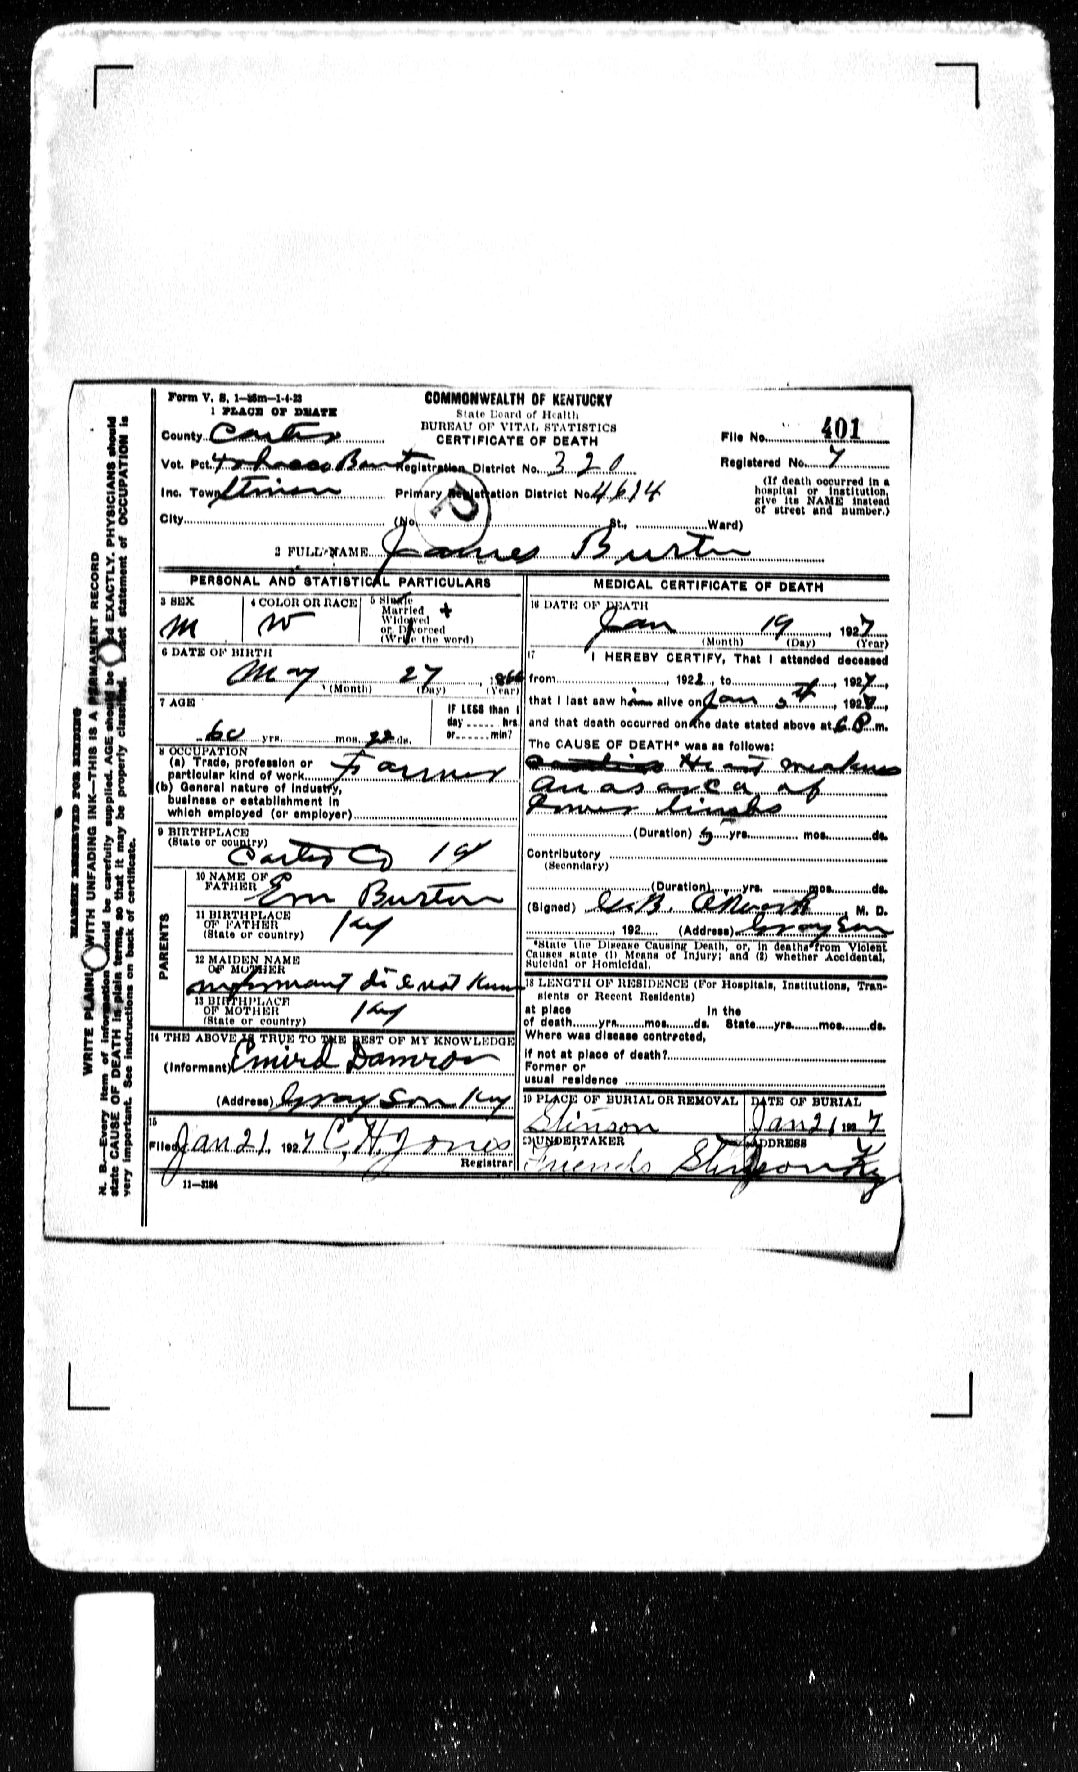 Form V. S. 1—25m—1-4-23
COMMONWEALTH OF KENTUCKY
State Board of Health
BUREAU OF VITAL STATISTICS
CERTIFICATE OF DEATH
1 PLACE OF DEATH
County Carter
File No. 401
Vot. Pct. Registration District No. 320
Registered No. 7
Inc. Town Stinson Primary Registration District No. 4614
(If death occurred in a
hospital or institution,
give its NAME instead
of street and number.)
City (No. St., Ward)
2 FULL NAME James Burton
PERSONAL AND STATISTICAL PARTICULARS
3 SEX
M
4 COLOR OR RACE
W
5 Single
Married +
Widowed
or Divorced
(Write the word)
6 DATE OF BIRTH
May 27, 1866
(Month) (Day) (Year)
7 AGE
60 yrs. mos. 22 ds.
IF LESS than 1
day hrs
or min?
8 OCCUPATION
(a) Trade, profession or
particular kind of work Farmer
(b) General nature of industry,
business or establishment in
which employed (or employer)
9 BIRTHPLACE
(State or country)
Carter Co Ky
PARENTS
10 NAME OF
FATHER Em Burton
11 BIRTHPLACE
OF FATHER
(State or country) Ky
12 MAIDEN NAME
OF MOTHER
informant did not Know
13 BIRTHPLACE
OF MOTHER
(State or country) Ky
14 THE ABOVE IS TRUE TO THE BEST OF MY KNOWLEDGE
(Informant) Damron
(Address) Grayson Ky
15
Filed Jan 21, 1927 C. H. Jones
Registrar
11—3184
MEDICAL CERTIFICATE OF DEATH
16 DATE OF DEATH
Jan 19, 1927
(Month) (Day) (Year)
17 I HEREBY CERTIFY, That I attended deceased
from , 192 , to , 1927,
that I last saw him alive on Jan 5th, 1927,
and that death occurred on the date stated above at 6 P. m.
The CAUSE OF DEATH* was as follows:
Heart weakness
Anasarca of
lower limbs
(Duration) 5 yrs. mos. ds.
Contributory
(Secondary)
(Duration) yrs. mos. ds.
(Signed) , M. D.
, 192 (Address) Grayson
*State the Disease Causing Death, or, in deaths from Violent
Causes state (1) Means of Injury; and (2) whether Accidental,
Suicidal or Homicidal.
18 LENGTH OF RESIDENCE (For Hospitals, Institutions, Tran-
sients or Recent Residents)
at place In the
of death yrs. mos. ds. State yrs. mos. ds.
Where was disease contracted,
if not at place of death?
Former or
usual residence
19 PLACE OF BURIAL OR REMOVAL
Stinson
DATE OF BURIAL
Jan 21 1927
20 UNDERTAKER
Friends
ADDRESS
Stinson Ky
MARGIN RESERVED FOR BINDING
WRITE PLAINLY WITH UNFADING INK—THIS IS A PERMANENT RECORD
N. B.—Every item of information should be carefully supplied. AGE should be stated EXACTLY. PHYSICIANS should
state CAUSE OF DEATH in plain terms, so that it may be properly classified. Exact statement of OCCUPATION is
very important. See instructions on back of certificate.